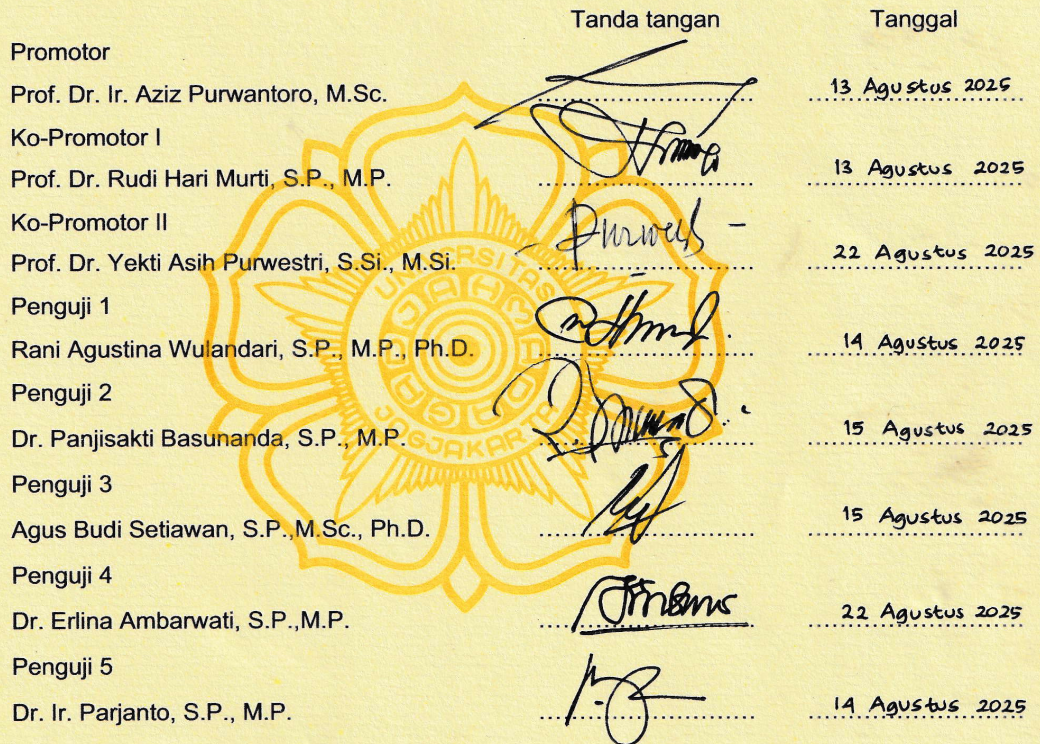 Tanda tangan Tanggal
Promotor
Prof. Dr. Ir. Aziz Purwantoro, M.Sc. 13 Agustus 2025
Ko-Promotor I
Prof. Dr. Rudi Hari Murti, S.P., M.P. 13 Agustus 2025
Ko-Promotor II
Prof. Dr. Yekti Asih Purwestri, S.Si., M.Si. 22 Agustus 2025
Penguji 1
Rani Agustina Wulandari, S.P., M.P., Ph.D. 14 Agustus 2025
Penguji 2
Dr. Panjisakti Basunanda, S.P., M.P. 15 Agustus 2025
Penguji 3
Agus Budi Setiawan, S.P.,M.Sc., Ph.D. 15 Agustus 2025
Penguji 4
Dr. Erlina Ambarwati, S.P.,M.P. 22 Agustus 2025
Penguji 5
Dr. Ir. Parjanto, S.P., M.P. 14 Agustus 2025
UNIVERSITAS
GADJAH MADA
JOGJAKARTA